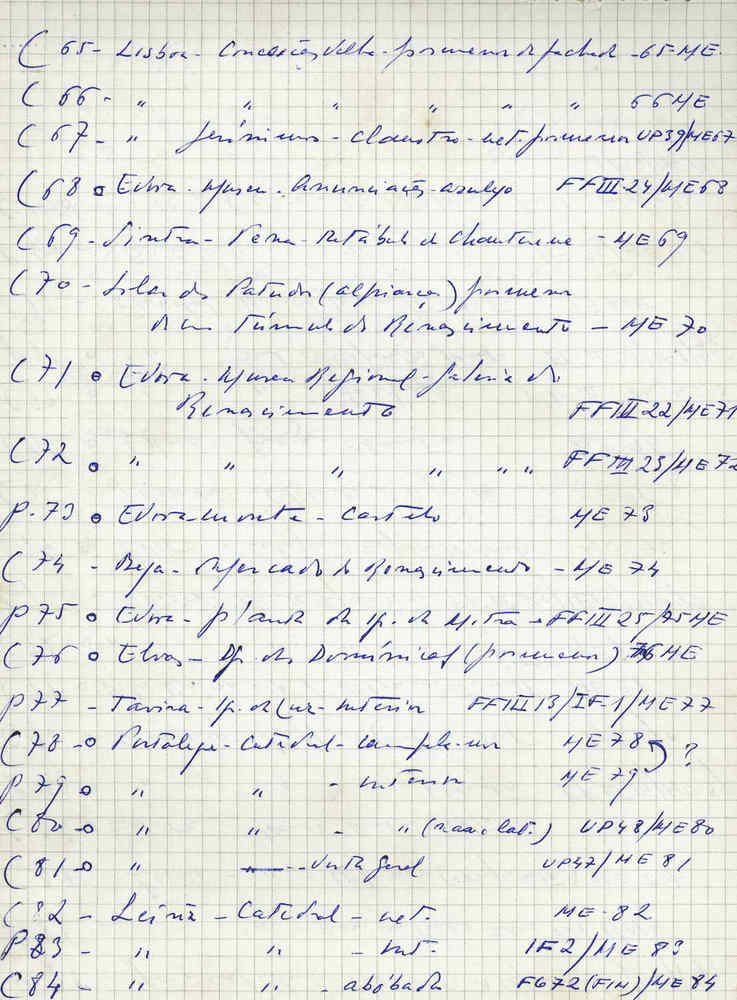 C 65 - Lisboa - Conceição Velha - pormenor da fachada - 65-ME.
C 66 - " " " " " " 66 ME
C 67 - " Jerónimos - Claustro - ret. pormenor UP39/ME67
C 68 o Évora - Museu - Anunciação - azulejo FFIII-24/ME68
C 69 - Sintra - Pena - Retábulo de Chanterene - ME 69
C 70 - Solar dos Patudos (Alpiarça) pormenor
de um Túmulo do Renascimento - ME 70
C 71 o Évora - Museu Regional - Galeria do
Renascimento FFIII 22/ME71
C 72 o " " " " " " FFIII 23/ME 72
P. 73 o Évora-monte - Castelo ME 73
C 74 - Beja - Mercado do Renascimento - ME 74
P 75 o Évora - planta da Ig. da Mitra - FFIII 25/75 ME
C 76 o Elvas - Ig. das Domínicas (pormenor) 76 ME
P 77 - Tavira - Ig. da Luz - Interior FFIII 13/IF-1/ME77
C 78 - o Portalegre - Catedral - ME 78 ?
P 79 o " " - interior ME 79
C 80 - o " " - " (nave lat.) UP48/ME80
C 81 - o " - Vista geral UP47/ME 81
C 82 - Leiria - Catedral - ret. ME-82
P 83 - " " - int. IF2/ME 83
C 84 - " " - abóbada F672 (FIN)/ME 84